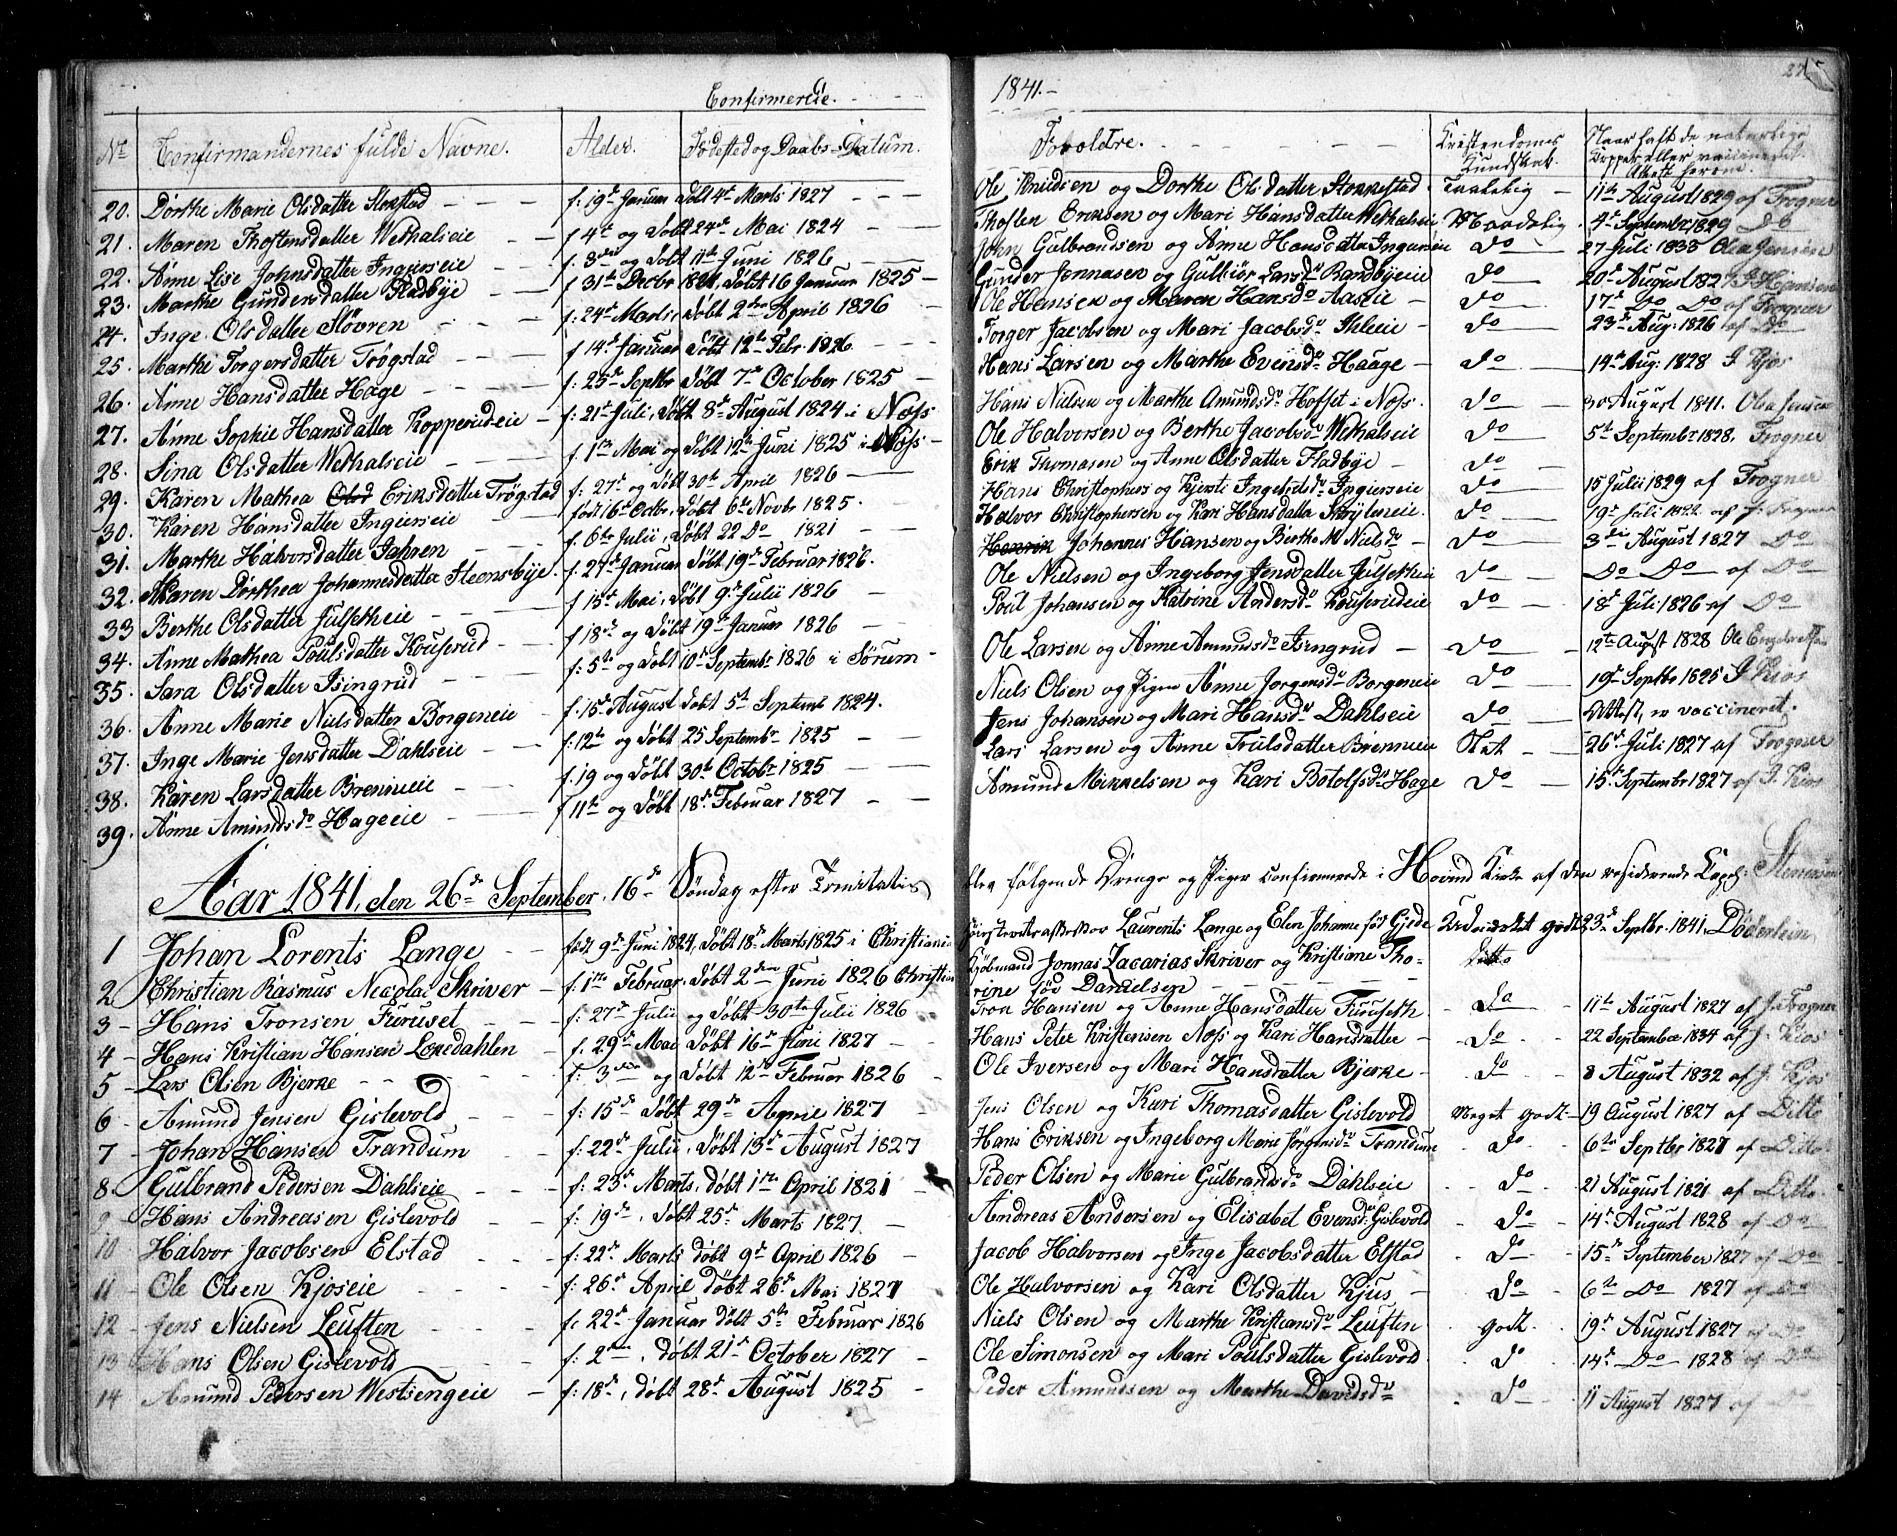 Confirmerede.
1841.-
No Confirmandernes fulde Navne. Alder. Fødested og Daabs-Datum. Forældre. Kristendoms Kundskab. Naar haft de naturlige Kopper eller vaccineret.
20. Dorthe Marie Olsdatter Stokstad f: 19de Januar Døbt 4de Marts 1827 Ole Knudsen og Dorthe Olsdatter Stokkestad Taalelig 11te August 1829 af Frogner
21. Maren Thostensdatter Wethalseie f 4de og Døbt 24de Mai 1824 Thosten Eriksen og Mari Hansdatter Wethalseie Maadelig 4de September 1829 Do
22. Anne Lise Johnsdatter Ingierseie f. 3die og Døbt 11te Juni 1826 John Gulbrandsen og Anne Hansdatter Ingierseie Do 27 Juli 1838 Ole Jensen
23. Marthe Gundersdatter Fladbye f 31te Decbr 1824, Døbt 16 Januar 1825 Gunder Jonnasen og Gulbiør Larsdr Do 20de August 1827 Hansen
24. Inge Olsdatter Støvren f: 24de Marts Døbt 2den April 1826 Ole Hansen og Maren Hansdr Aaseie Do 17de Do Do af Frogner
25. Marthe Torgersdatter Trøgstad f 14de Januar Døbt 12te Febr. 1826 Torger Jacobsen og Mari Jacobsdr Do 23de Aug. 1826 af Do
26. Anne Hansdatter Hage f: 25de Septbr Døbt 7de October 1825 Hans Larsen og Marthe Evensdr Haage Do 14de Aug: 1828 J Kjos
27. Anne Sophie Hansdatter Kopperudeie f: 21de Juli, Døbt 8de August 1824 i Næs Hans Nielsen og Marthe Amundsdr Hofset i Næs. Do August 1841. Ole Jensen
28. Sina Olsdatter Wethalseie f. 1te Mai og Døbt 12te Juni 1825 i Næs Ole Halvorsen og Berthe Jacobsdr Wethalseie Do 5te Septembr 1828, Frogner
29. Karen Mathea Eriksdatter Trøgstad f: 27de og Døbt 30te April 1826 Erik Thomasen og Anne Olsdatter Fladbye Do
30. Karen Hansdatter Ingierseie født 16de Octbr, Døbt 6te Novbr 1825. Hans Christophers og Kjersti Ingebretsdr Ingierseie Do 15 Julii 1829 af Frogner
31. Marthe Halvorsdatter Jahren f. 6te Julii, Døbt 22 Do 1821 Halvor Christophersen og Kari Hansdatter Do 19de Juli 1822 af J. Frogner
32. Karen Dorthea Johannesdatter Steensbye. f. 27de Januar Døbt 19de Februar 1826. Johannes Hansen og Birthe M Nielsdr Do 3die August 1827 Do
33 Berthe Olsdatter Julsetheie f 15de Mai, Døbt 9de Julii 1826 Ole Nielsen og Ingeborg Jensdatter Julsetheie Do Do Do af Do
34. Anne Mathea Poulsdatter Kouserud f 18de og Døbt 19de Januar 1826 Poul Johansen og Katrine Andersdr Kouserudeie Do 18de Juli 1826 af Do
35. Sara Olsdatter Isingrud f: 5te og Døbt 10de Septembr 1826 i Sørum Ole Larsen og Anne Amundsdr Isingrud Do 12te August 1828 Ole Engebretsen
36. Anne Marie Nielsdatter Borgeneie f: 15de August Døbt 5te Septemb 1824. Niels Olsen og Pigen Anne Jorgensdr Borgeneie Do 19de Septbr 1825 J Kios
37. Inge Marie Jensdatter Dahlseie f: 12te og Døbt 25 Septembr 1825 Jens Johansen og Mari Hansdr Dahlseie Do Attest, er vaccineret.
38. Karen Larsdatter Brennieie f. 19 og Døbt 30te Octobr 1825 Lars Larsen og Anne Trulsdatter Brenneie Slet 26de Juli 1827 af Frogner
39. Anne Amundsdr Hageeie f 11te og Døbt 18de Februar 1827 Amund Mikkelsen og Kari Botolfsdr Hage Do 15de Septembr 1827 af J. Kios
Aar 1841, den 26de September, 16de Søndag efter Trinitatis blev følgende Drenge og Piger confirmerede i Hovind Kirke af den residerende Capel. Stenersen
1 Johan Lorents Lange født 9de Juni 1824, Døbt 18de Marts 1825 i Christiania Laurents Lange og Elen Johanne fød Gjede Udmærket godt 23de Septbr. 1841, Døderlein
2 Christian Rasmus Nicolai Skriver f. 1te Februar, Døbt 2den Juni 1826 Christian Kjøbmand Jonnas Zacarias Skriver og Kristiane Thorine fød Danielsen Ditto
3 Hans Tronsen Furuset f: 27de Julii og Døbt 30te Julii 1826 Tron Hansen og Anne Hansdatter Furuseth Do 11te August 1827 af J. Frogner
4 Hans Kristian Hansen Loredahlen f. 29de Mai Døbt 16de Juni 1827 Hans Peter Kristensen Næss og Kari Hansdatter Do 22 September 1834 af J. Kios
5 Lars Olsen Bjerke f: 3die og Døbt 12te Februar 1826 Ole Iversen og Mari Hansdatter Bjerke Do 8 August 1832 af J. Kjos
6 Amund Jensen Gislevold f: 15de Døbt 29de April 1827 Jens Olsen og Kari Thomasdatter Gislevold Meget godt 19 August 1827 af Ditto
7 Johan Hansen Trandum f: 22de Julii, Døbt 19de August 1827 Hans Eriksen og Ingeborg Marie Jørgensdr Trandum Do 6te Septbr 1827 af Ditto
8. Gulbrand Pedersen Dahlseie f: 23de Marts, døbt 1te April 1821 Peder Olsen og Marie Gulbrandsdr Dahlseie Do 21 August 1821 af Ditto
9 Hans Andreasen Gislevold f: 19de, Døbt 25de Marts 1827. Andreas Andersen og Elisabet Evensd: Gislevold Do 14de August 1828 af Do
10 Halvor Jacobsen Elstad f: 22de Marts døbt 9de April 1826 Jacob Halvorsen og Inge Jacobsdatter Elstad Do 15de September 1827 af Do
11 Ole Olsen Kjoseie f: 26de April døbt 26de Mai 1827 Ole Halvorsen og Kari Olsdatter Kjus Do 6te Do 1827 af Do
12 Jens Nielsen Leuften f. 22de Januar døbt 5te Februar 1826 Niels Olsen og Marthe Kristiansdr Leuften godt 19de August 1827 af Do
13 Hans Olsen Gislevold f: 2den, døbt 21de October 1827 Ole Simonsen og Mari Poulsdatter Gislevold Do 14de Do 1828 af Do
14 Amund Pedersen Westsengeie f: 18de, døbt 28de August 1825 Peder Amundsen og Marthe Davidsdr Do 11 August 1827 af Do